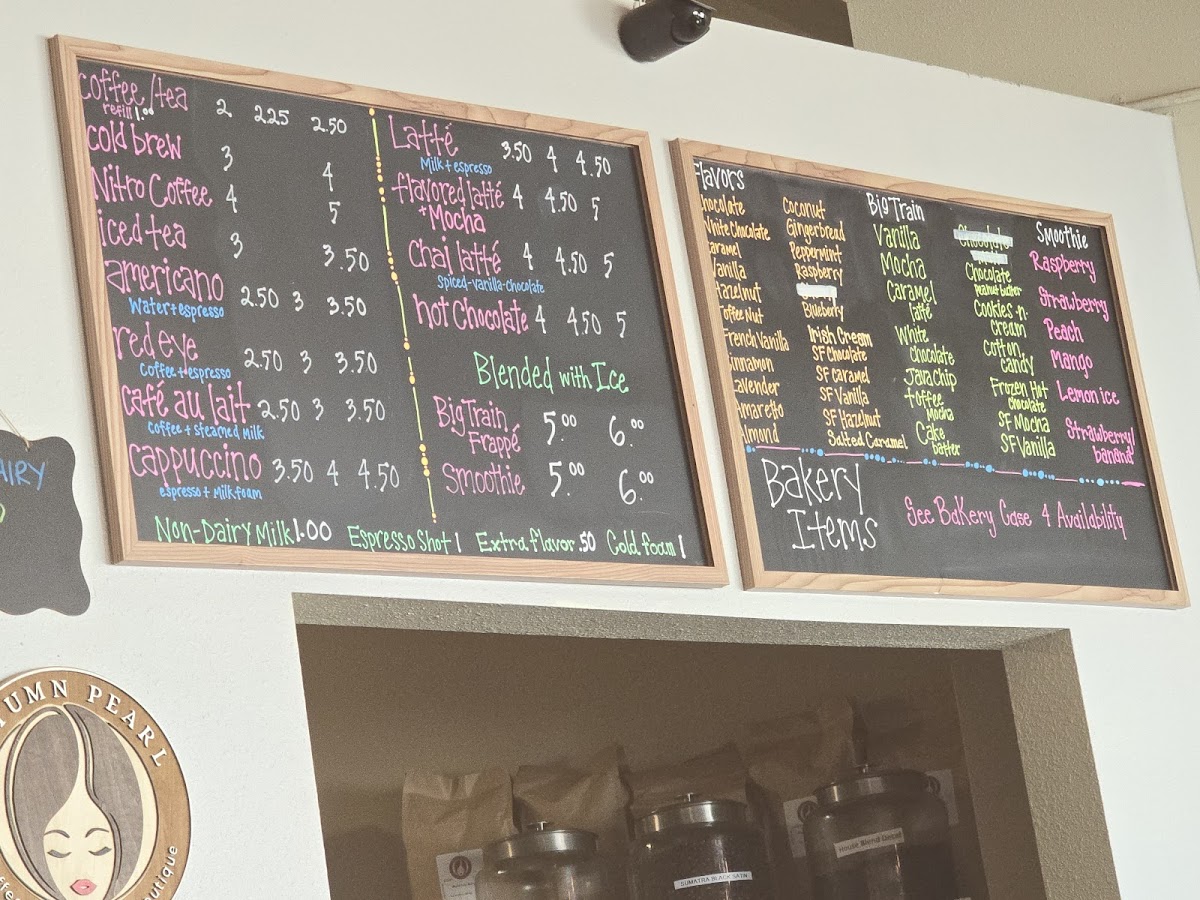 coffee/tea 2 2.25 2.50
refill 1.00
cold brew 3 4
Nitro Coffee 4 5
iced tea 3 3.50
americano 2.50 3 3.50
Water + espresso
red eye 2.50 3 3.50
Coffee + espresso
café au lait 2.50 3 3.50
Coffee + steamed milk
cappuccino 3.50 4 4.50
espresso + milk foam
Latté 3.50 4 4.50
Milk + espresso
flavored latté 4 4.50 5
+ Mocha
Chai latté 4 4.50 5
Spiced-vanilla-chocolate
hot Chocolate 4 4.50 5
Blended with Ice
Big Train 5.00 6.00
Frappé
Smoothie 5.00 6.00
Non-Dairy Milk 1.00 Espresso Shot 1 Extra flavor .50 Cold foam 1
Flavors
Chocolate
White Chocolate
Caramel
Vanilla
Hazelnut
Toffee Nut
French Vanilla
Cinnamon
Lavender
Amaretto
Almond
Coconut
Gingerbread
Peppermint
Raspberry
Blueberry
Irish Cream
SF Chocolate
SF Caramel
SF Vanilla
SF Hazelnut
Salted Caramel
Big Train
Vanilla
Mocha
Caramel
latte
White
Chocolate
Java Chip
toffee
Mocha
Cake
batter
Chocolate
Peanut butter
Cookies-n-
Cream
Cotton
Candy
Frozen Hot
Chocolate
SF Mocha
SF Vanilla
Smoothie
Raspberry
Strawberry
Peach
Mango
Lemon ice
Strawberry/
banana
Bakery
Items
See Bakery Case 4 Availability
AIRY
UMN PEARL
utique
SUMATRA BLACK SATIN
House Blend Decaf